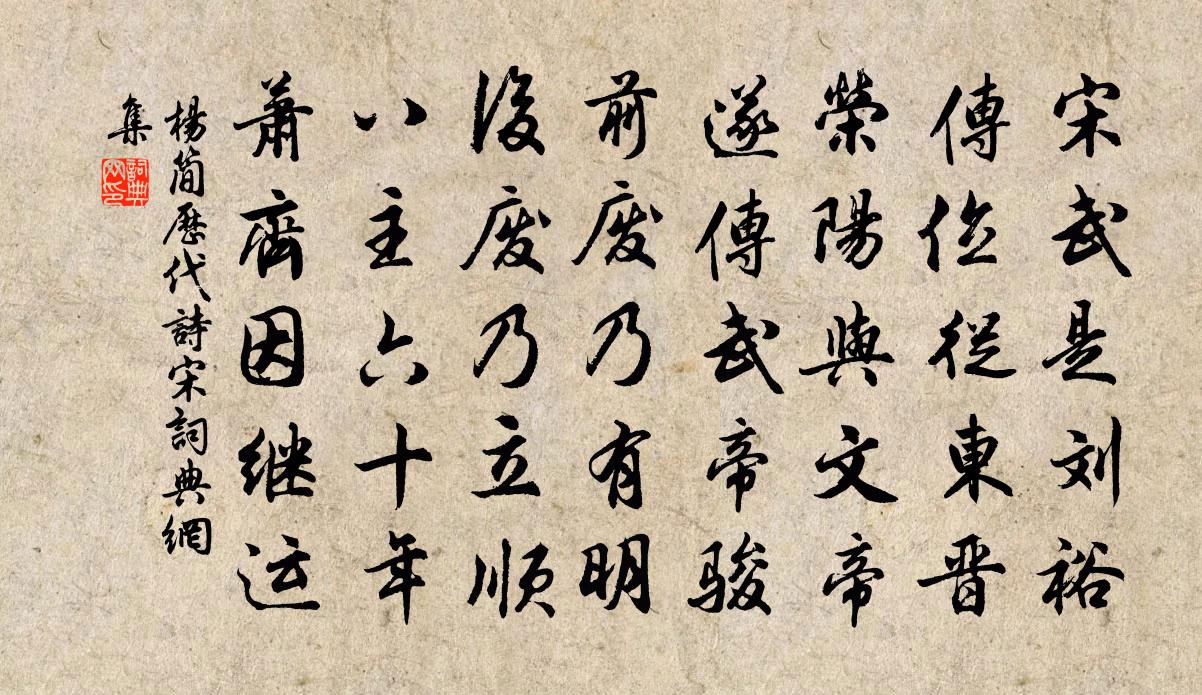 宋武是刘裕
傳位從東晋
荣陽與文帝
遂傳武帝骏
前废乃有明
後废乃立順
八主六十年
萧齊因继运
楊简歷代詩宋詞典網
集
詞典網印